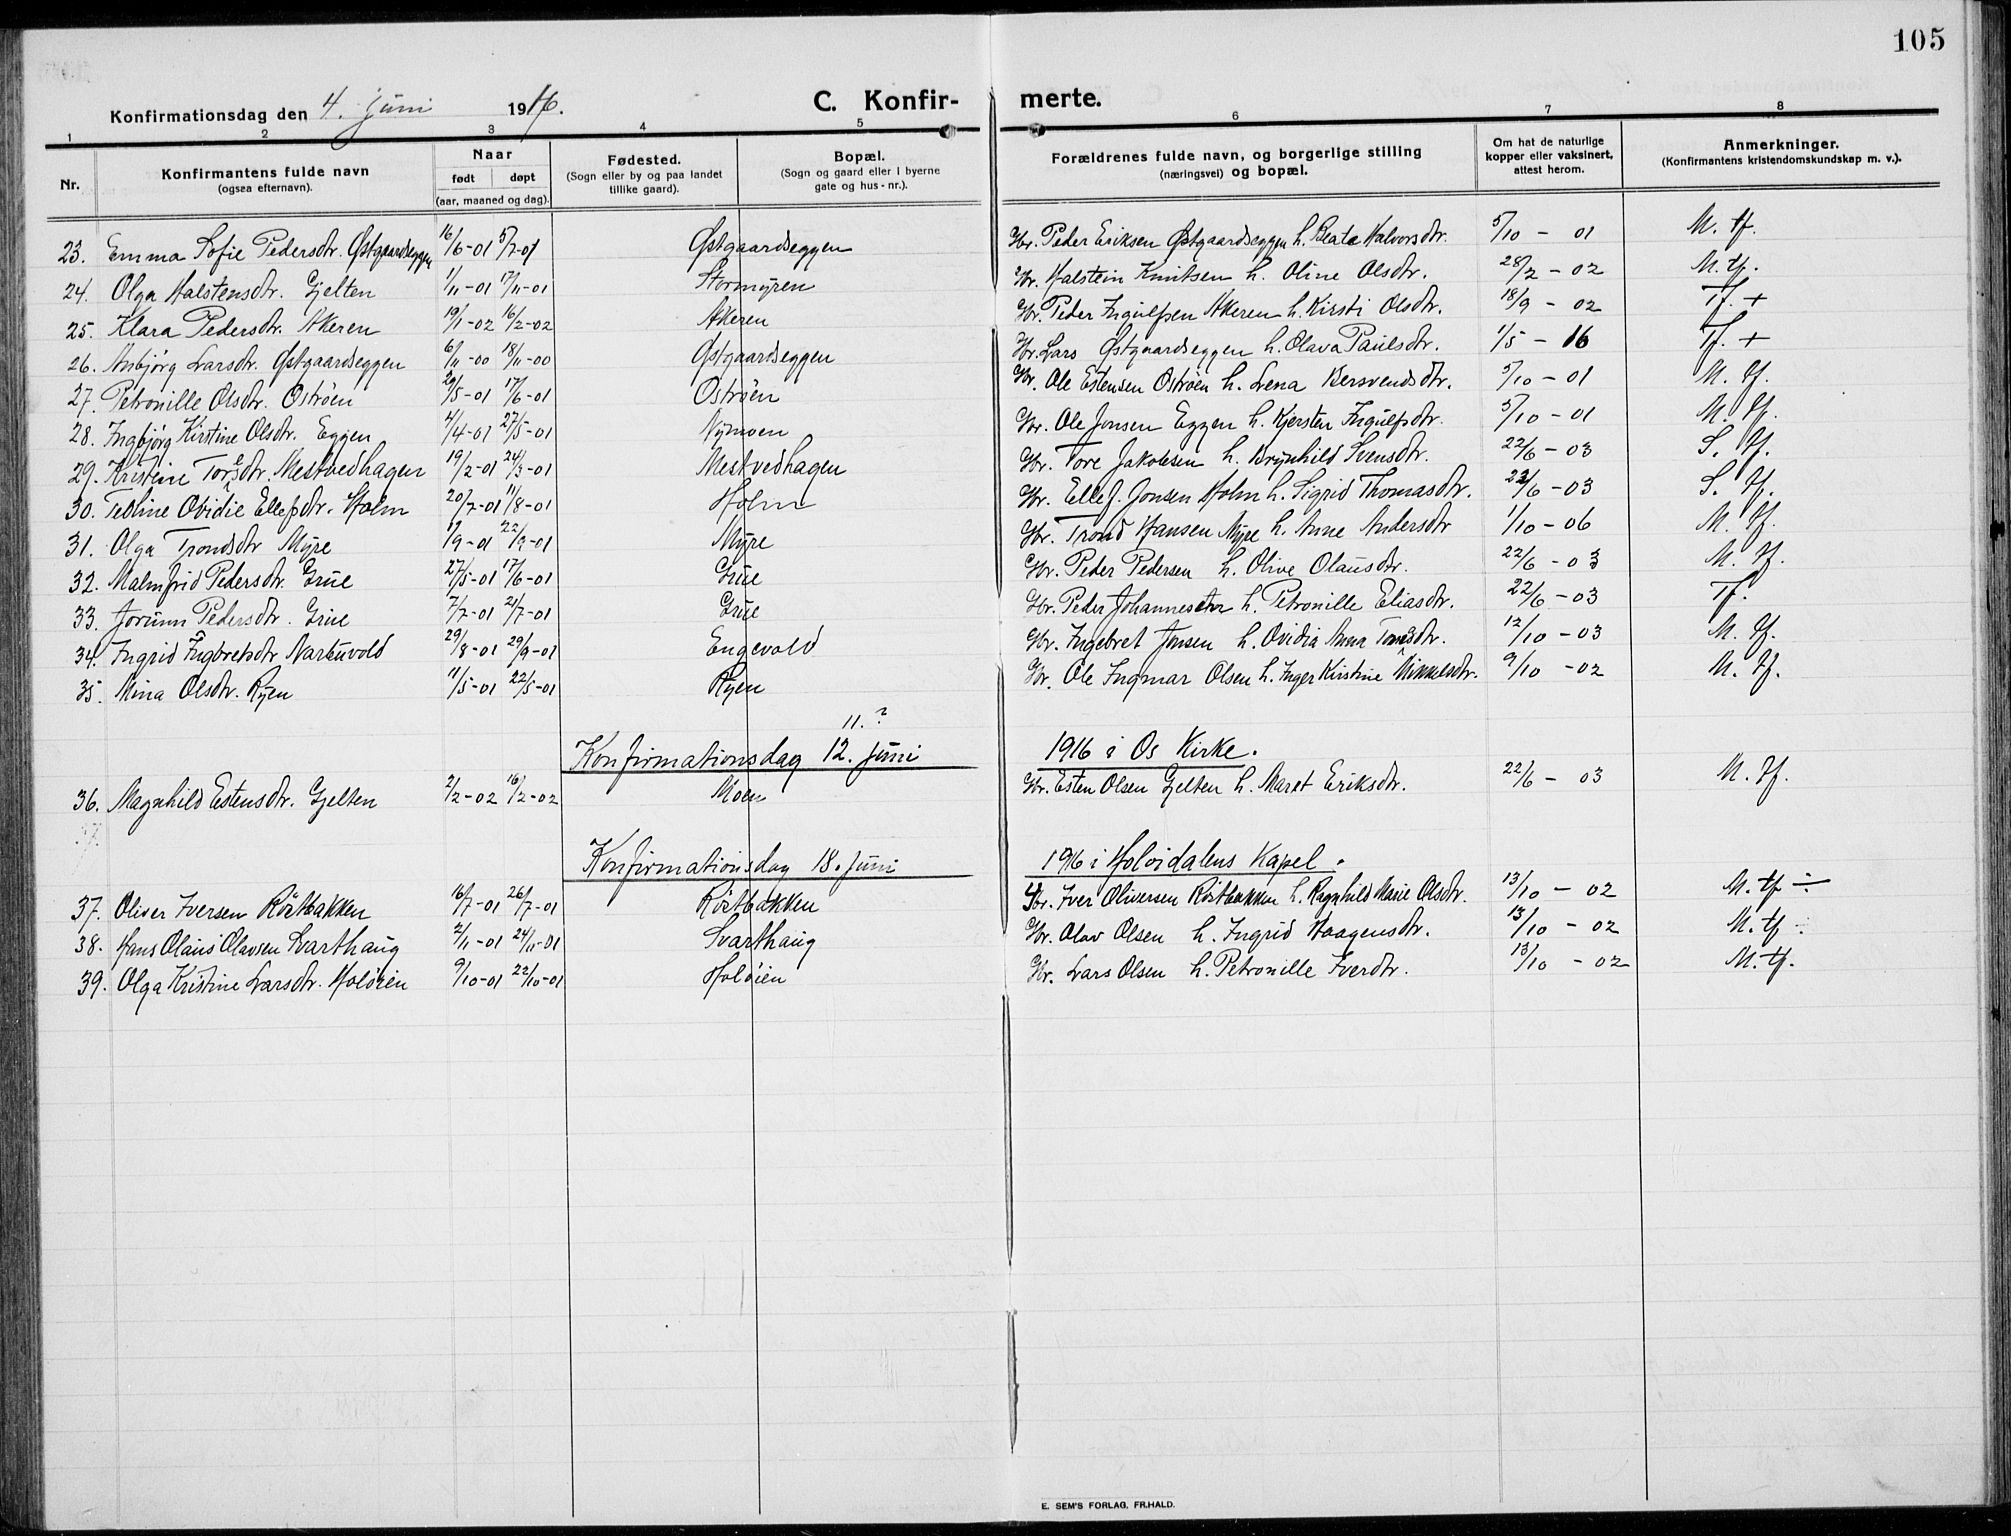 105
Konfirmationsdag den 4. juni 1916. C. Konfir- merte.
1 2 3 4 5 6 7 8
Nr. Konfirmantens fulde navn (ogsaa efternavn). Naar født døpt (aar, maaned og dag). Fødested. (Sogn eller by og paa landet tillike gaard). Bopæl. (Sogn og gaard eller i byerne gate og hus-nr.). Forældrenes fulde navn, og borgerlige stilling (næringsvei) og bopæl. Om hat de naturlige kopper eller vaksinert, attest herom. Anmerkninger. (Konfirmantens kristendomskundskap m. v.).
23. Emma Sofie Pedersdtr. Østgaardseggen 16/6-01 5/7-01 Østgaardseggen Gbr. Peder Eriksen Østgaardseggen h. Beata Halvorsdtr. 5/10 - 01 M. tf.
24. Olga Halstensdtr. Gjelten 1/11-01 17/11-01 Stormyren Gbr. Halstein Knutsen h. Oline Olsdtr. 28/2 - 02 M. tf.
25. Klara Pedersdtr. Akeren 19/1-02 16/2-02 Akeren Gbr. Peder Ingulfsen Akeren h. Kirsti Olsdtr. 18/9 - 02 Tf. +
26. Anbjørg Larsdtr. Østgaardseggen 6/11-00 18/11-00 Østgaardseggen Gbr. Lars Østgaardseggen h. Olava Paulsdtr. 1/5 - 16 Tf. +
27. Petronille Olsdtr. Oströen 29/5-01 17/6-01 Oströen Gbr. Ole Estensen Oströen h. Lena Bersvendsdtr. 5/10 - 01 M. tf.
28. Ingbjørg Kirstine Olsdtr. Eggen 4/4-01 27/5-01 Nymoen Gbr. Ole Jonsen Eggen h. Kjersten Ingulfsdtr. 5/10 - 01 M. tf.
29. Kristine Toresdtr. Mestvedhagen 19/2-01 24/3-01 Mestvedhagen Gbr. Tore Jakobsen h. Brynhild Svensdtr. 22/6 - 03 S. tf.
30. Teoline Ovidie Ellefsdtr. Holm 20/7-01 11/8-01 Holm Gbr. Ellef Jonsen Holm h. Sigrid Thomasdtr. 22/6 - 03 S. tf.
31. Olga Trondsdtr Myre 1/9-01 22/9-01 Myre Gbr. Trond Hansen Myre h. Anne Andersdtr 1/10 - 06 M. tf.
32. Malmfrid Pedersdtr. Grue 27/5-01 17/6-01 Grue Gbr. Peder Pedersen h. Olive Olausdtr. 22/6 - 03 M. tf.
33. Jorunn Pedersdtr. Grue 7/7-01 21/7-01 Grue Gbr. Peder Johannes h. Petronille Eliasdtr. 22/6 - 03 Tf.
34. Ingrid Ingbretsdtr Narbuvold 29/8-01 29/9-01 Engevold Gbr. Ingebret Jonsen h. Ovidia Anna Tomsdtr. 12/10 - 03 M. tf.
35. Mina Olsdtr. Ryen 11/5-01 22/5-01 Ryen Gbr. Ole Ingmar Olsen h. Inger Kirstine Mikkelsdtr. 9/10 - 02 M. tf.
11.?
Konfirmationsdag 12. juni 1916 i Os Kirke.
36. Magnhild Estensdtr. Gjelten 2/2-02 16/2-02 Moen Gbr. Esten Olsen Gjelten h. Maret Eriksdtr. 22/6 - 03 M. tf.
Konfirmationsdag 18. juni 1916 i Holöidalens Kapel.
37. Oliver Iversen Röstbakken 16/7-01 26/7-01 Röstbakken Gbr. Iver Oliversen Röstbakken h. Ragnhild Marie Olsdtr. 13/10 - 02 M. tf ÷
38. Hans Olaus Olavsen Svarthaug 2/11-01 24/11-01 Svarthaug Gbr. Olav Olsen h. Ingrid Haagensdtr. 13/10 - 02 M. tf.
39. Olga Kristine Larsdtr. Holöien 9/10-01 22/10-01 Holöien Gbr. Lars Olsen h. Petronille Iversdtr. 13/10 - 02 M. tf.
E. SEM'S FORLAG, FR.HALD.